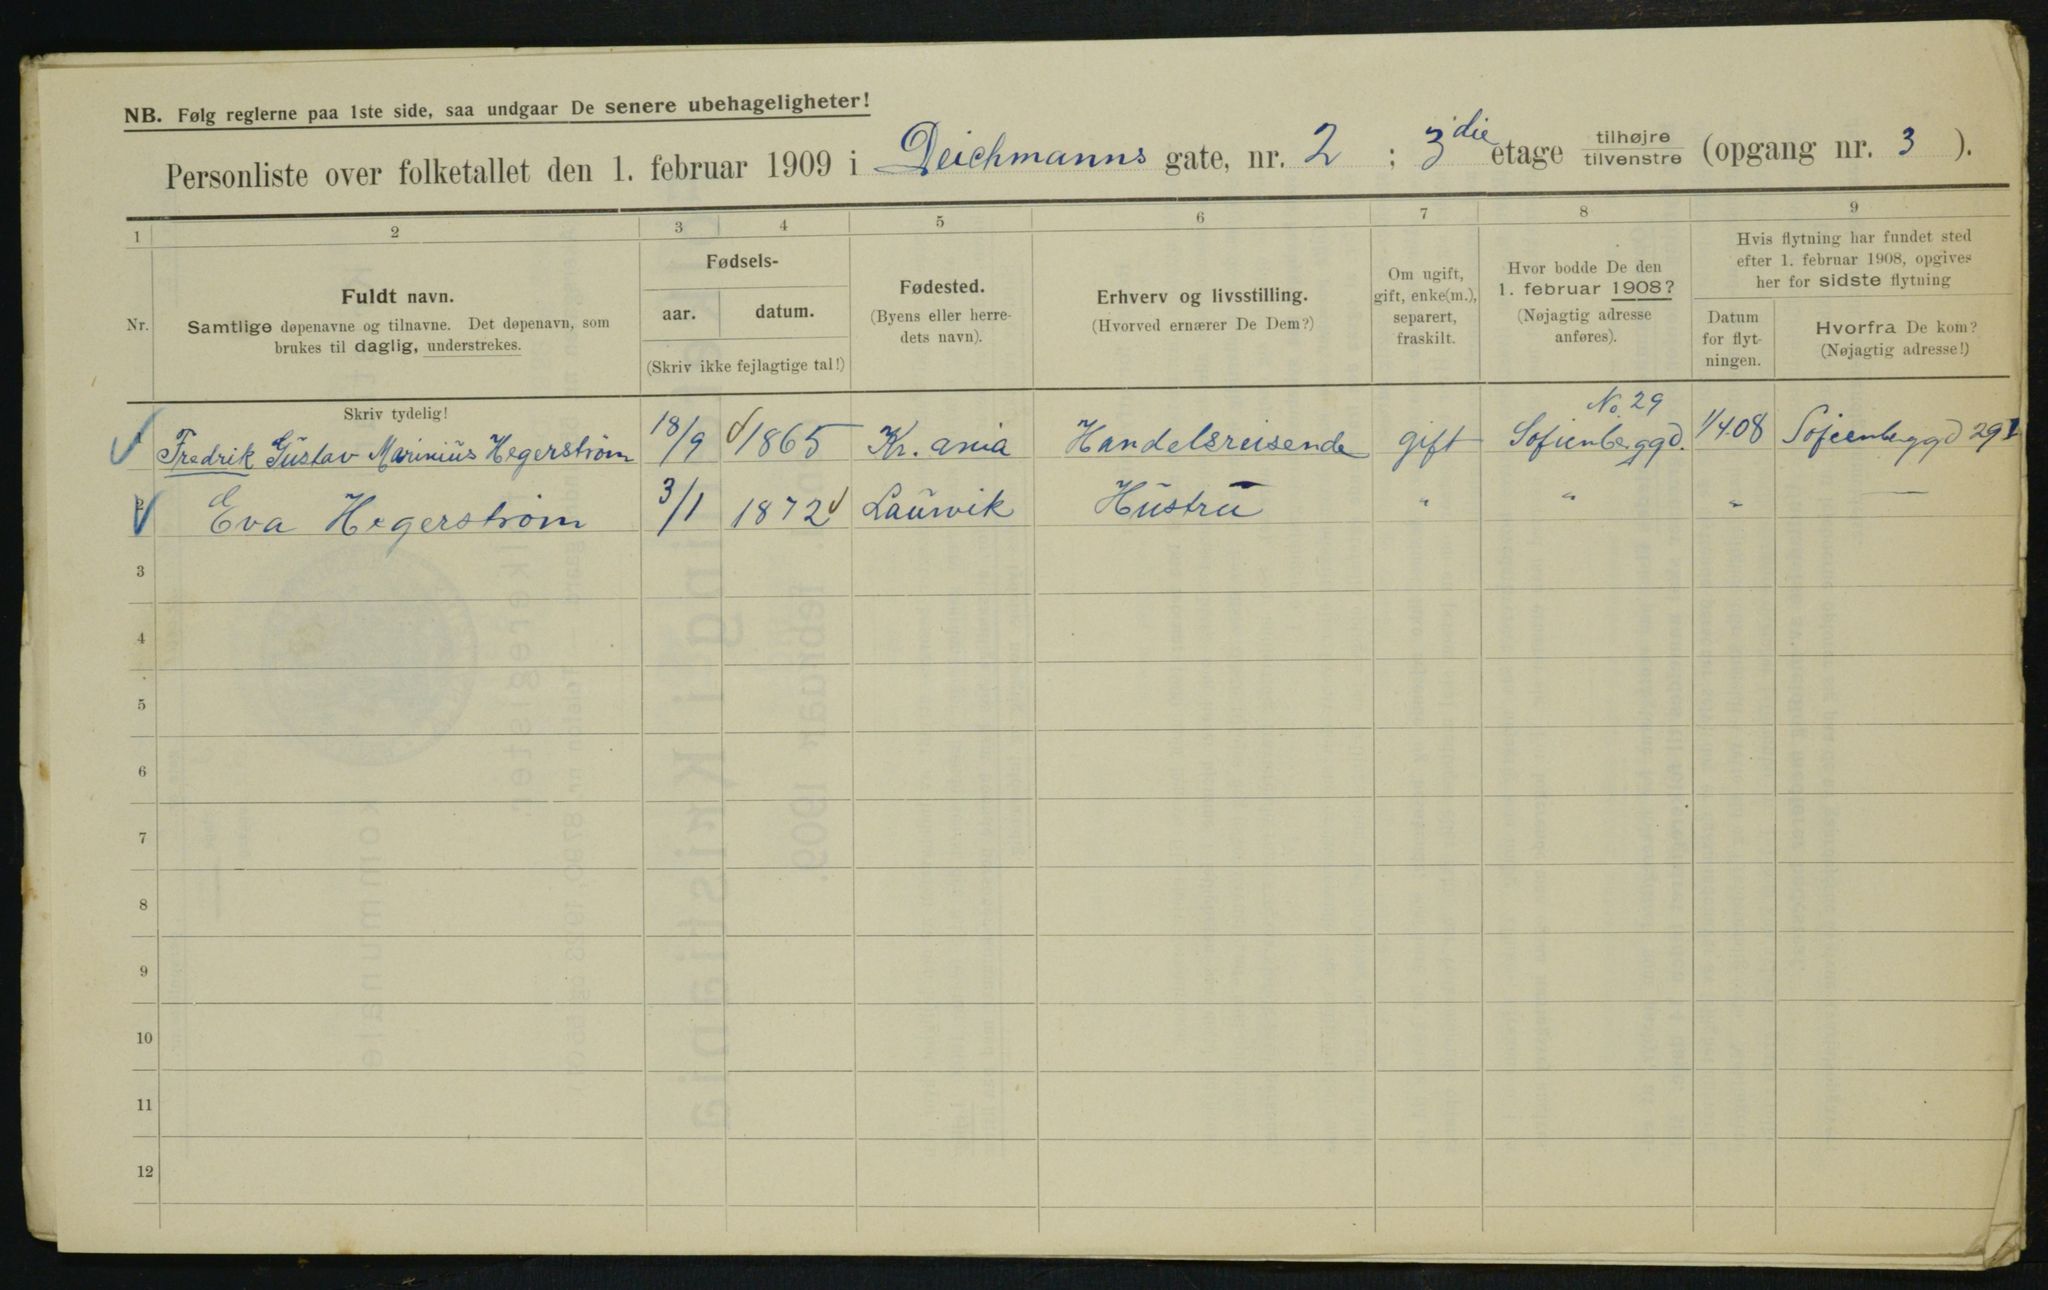 NB. Følg reglerne paa 1ste side, saa undgaar De senere ubehageligheter!
Personliste over folketallet den 1. februar 1909 i Deichmanns gate, nr. 2 ; 3die etage tilhøjre tilvenstre (opgang nr. 3 ).
1 2 3 4 5 6 7 8 9
Nr.
Fuldt navn.
Samtlige døpenavne og tilnavne. Det døpenavn, som
brukes til daglig, understrekes.
Skriv tydelig!
Fødsels-
aar. datum.
(Skriv ikke fejlagtige tal!)
Fødested.
(Byens eller herre-
dets navn).
Erhverv og livsstilling.
(Hvorved ernærer De Dem?)
Om ugift,
gift, enke(m.),
separert,
fraskilt.
Hvor bodde De den
1. februar 1908?
(Nøjagtig adresse
anføres).
Hvis flytning har fundet sted
efter 1. februar 1908, opgives
her for sidste flytning
Datum
for flyt-
ningen.
Hvorfra De kom?
(Nøjagtig adresse!)
Fredrik Gustav Marinius Hegerstrøm 18/9 1865 Kr. ania Handelsreisende gift Sofienberggd. No. 29 1/4 08 Sofienberggd 29 I
Eva Hegerstrøm 3/1 1872 Laurvik Hustru " " " —
3
4
5
6
7
8
9
10
11
12